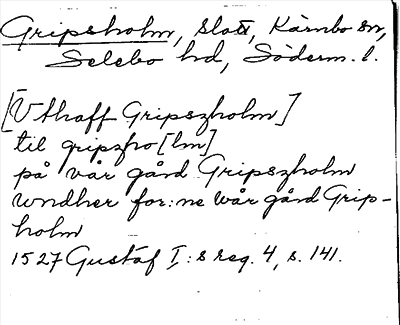 Gripsholm, slott, Kärnbo sn,
Selebo hd, Söderm. l.
[Vthaff Gripszholm]
til gripzho[lm]
på vår gård Gripszholm
wndher for:ne wår gård Grip-
holm
1527 Gustaf I:s reg. 4, s. 141.